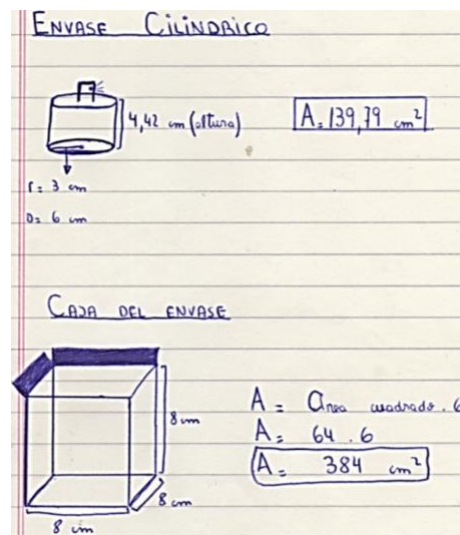 ENVASE CILINDRICO
4,42 cm (altura)
A= 139,79 cm²
r= 3 cm
D= 6 cm
CAJA DEL ENVASE
8 cm
8 cm
8 cm
A= Area cuadrado . 6
A= 64 . 6
A= 384 cm²